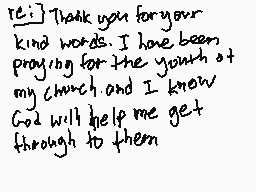 re:} Thank you for your
kind words. I have been
praying for the youth at
my church. and I know
God will help me get
through to them